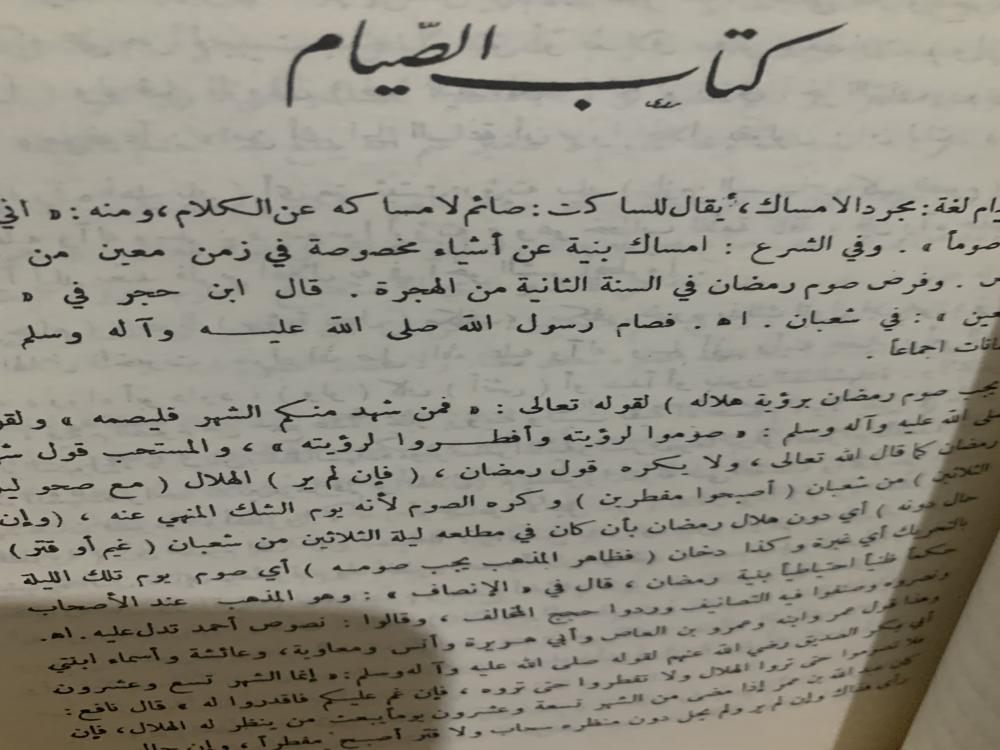 كتاب الصّيام
لغة : مجرد الامساك ، يقال للساكت : صائم لامساكه عن الكلام ، ومنه : « اني
صوماً » . وفي الشرع : امساك بنية عن أشياء مخصوصة في زمن معين من
. وفرض صوم رمضان في السنة الثانية من الهجرة . قال ابن حجر في «
» : في شعبان . اه . فصام رسول الله صلى الله عليه وآله وسلم
اجماعاً .
يجب صوم رمضان برؤية هلاله ) لقوله تعالى : « فمن شهد منكم الشهر فليصمه »
الله عليه وآله وسلم : « صوموا لرؤيته وأفطروا لرؤيته » ، والمستحب قول
رمضان كما قال الله تعالى ، ولا يكره قول رمضان ، ( فإن لم ير ) الهلال ( مع صحو
الثلاثين ) من شعبان ( أصبحوا مفطرين ) وكره الصوم لأنه يوم الشك المنهي عنه ، (وإن
حال دونه ) أي دون هلال رمضان بأن كان في مطلعه ليلة الثلاثين من شعبان ( غيم أو قتر )
بالتحريك أي غبرة وكذا دخان ( فظاهر المذهب يجب صومه ) أي صوم يوم تلك الليلة
حكماً ظنياً احتياطياً بنية رمضان ، قال في « الإنصاف » : وهو المذهب عند الأصحاب
ونصروه وصنفوا فيه التصانيف وردوا حجج المخالف ، وقالوا : نصوص أحمد تدل عليه . اه.
وهذا قول عمر وابنه وعمرو بن العاص وأبي هريرة وأنس ومعاوية ، وعائشة وأسماء ابنتي
أبي بكر الصديق رضي الله عنهم لقوله صلى الله عليه وآله وسلم : « إنما الشهر تسع وعشرون
فلا تصوموا حتى تروا الهلال ولا تفطروا حتى تروه ، فإن غم عليكم فاقدروا له » قال نافع :
كان عبد الله بن عمر إذا مضى من الشهر تسعة وعشرون يوماً يبعث من ينظر له الهلال ، فإن
رأى فذاك وإن لم ير ولم يحل دون منظره سحاب ولا قتر أصبح مفطراً ، وإن حال